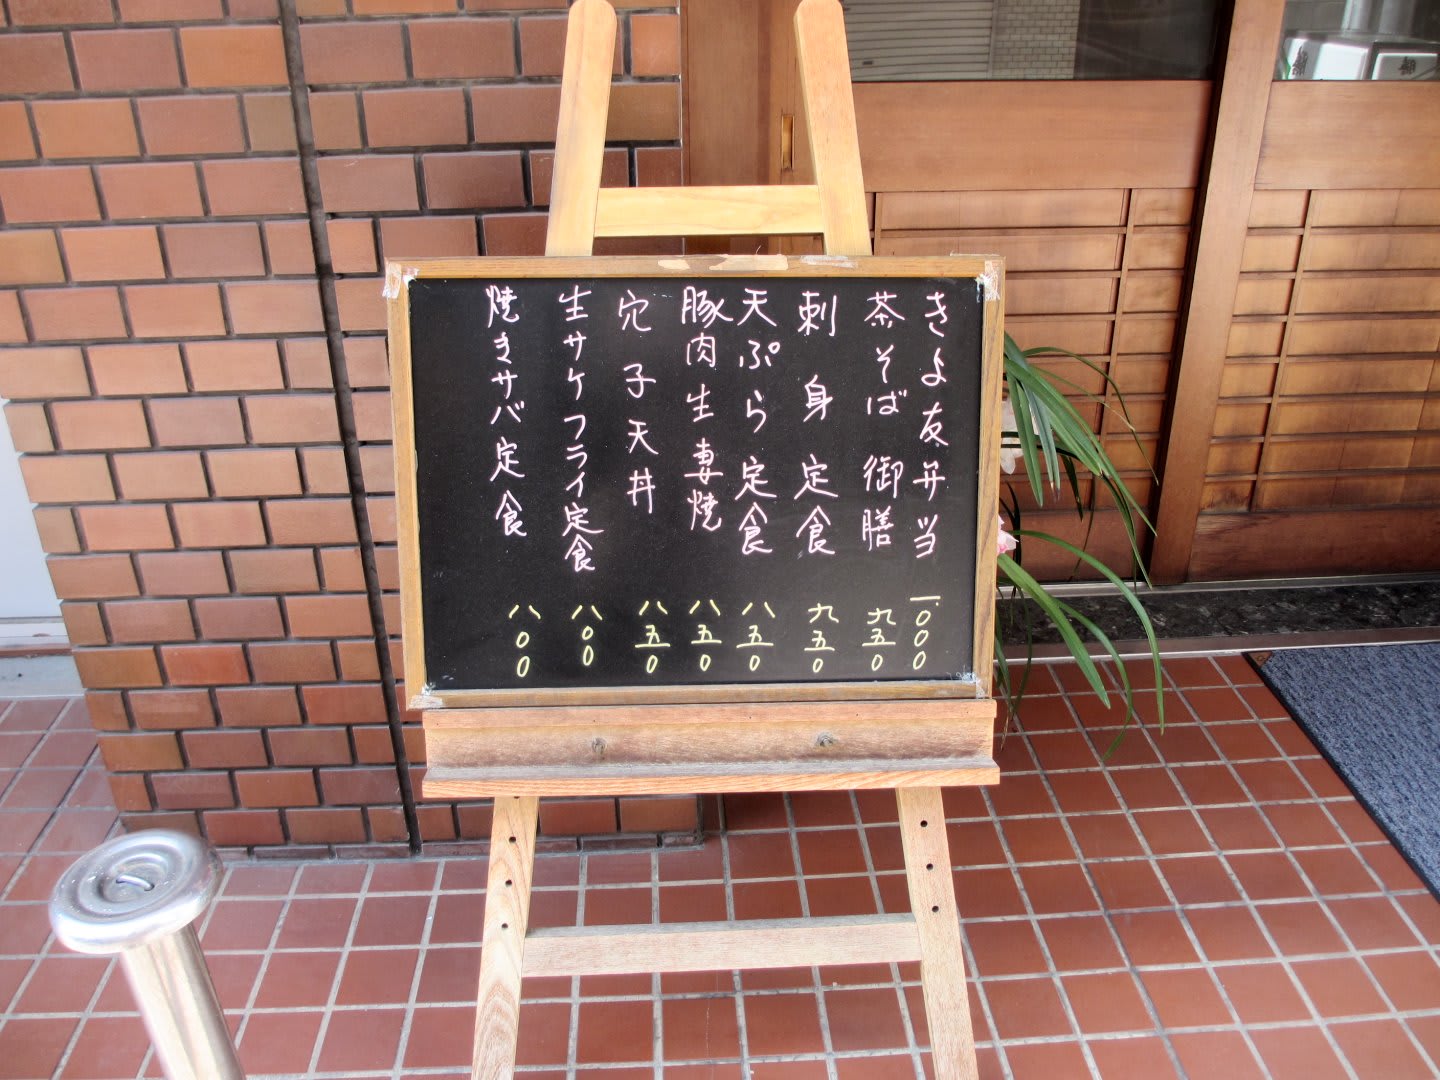 きよ友弁当 一000
茶そば御膳 九五0
刺身定食 九五0
天ぷら定食 八五0
豚肉生妻焼 八五0
穴子天丼 八五0
生サケフライ定食 八00
焼きサバ定食 八00